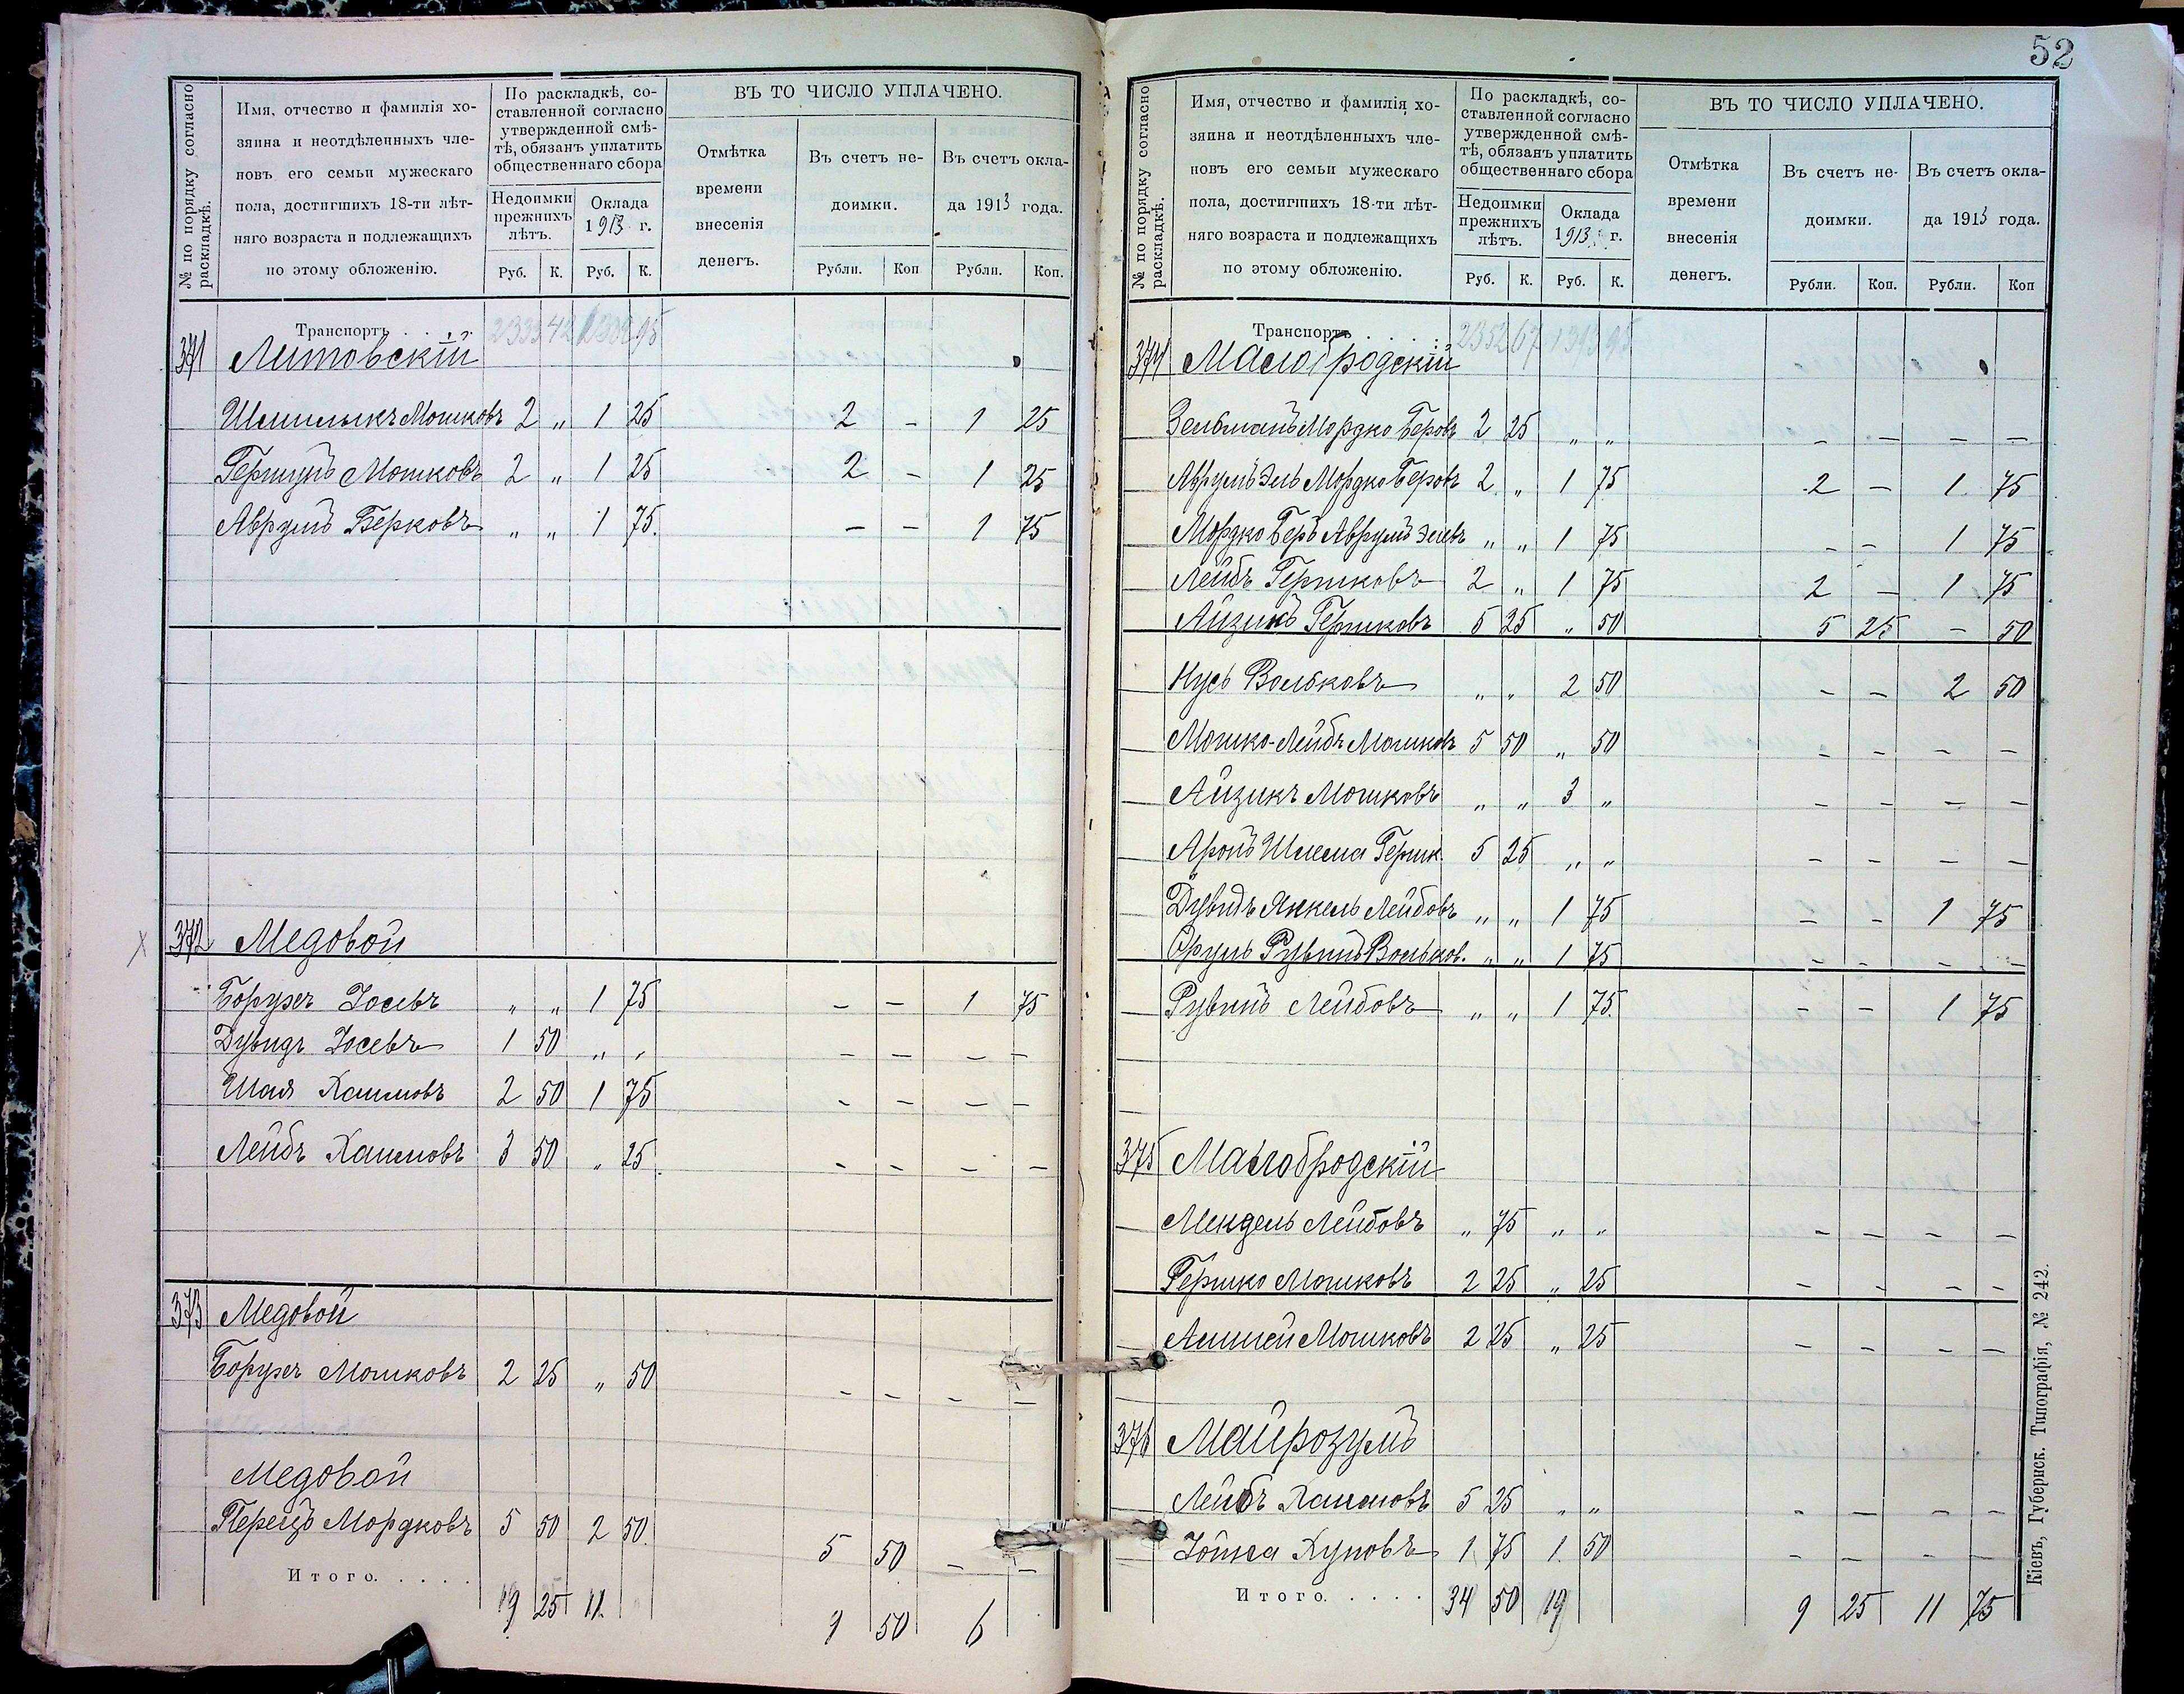 № по порядку согласно раскладкѣ.
Имя, отчество и фамилія хо-
зяина и неотдѣленныхъ чле-
новъ его семьи мужескаго
пола, достигшихъ 18-ти лѣт-
няго возраста и подлежащихъ
по этому обложенію.
По раскладкѣ, со-
ставленной согласно
утвержденной смѣ-
тѣ, обязанъ уплатить
общественнаго сбора
Недоимки
прежнихъ
лѣтъ.
Оклада
1913 г.
Руб. К. Руб. К.
ВЪ ТО ЧИСЛО УПЛАЧЕНО.
Отмѣтка
времени
внесенія
денегъ.
Въ счетъ не-
доимки.
Въ счетъ окла-
да 1913 года.
Рубли. Коп Рубли. Коп.
Транспортъ . . . . 2333 42 1302 95
371 Литовскій
Шмилыкъ Мошковъ 2 „ 1 25 2 - 1 25
Гершунъ Мошковъ 2 „ 1 25 2 - 1 25
Аврумъ Берковъ „ „ 1 75. - - 1 75
372 Медовой
Борухъ Іосевъ „ „ 1 75 - - 1 75
Дувидъ Іосевъ 1 50 „ „ - - - -
Шая Хаимовъ 2 50 1 75 - - - -
Лейбъ Хаимовъ 3 50 „ 25. - - - -
373 Медовой
Борухъ Мошковъ 2 25 „ 50 - - - -
Медовой
Перецъ Мордковъ 5 50 2 50. 5 50 - -
Итого. . . . . 19 25 11. 9 50 6
52
№ по порядку согласно раскладкѣ.
Имя, отчество и фамилія хо-
зяина и неотдѣленныхъ чле-
новъ его семьи мужескаго
пола, достигшихъ 18-ти лѣт-
няго возраста и подлежащихъ
по этому обложенію.
По раскладкѣ, со-
ставленной согласно
утвержденной смѣ-
тѣ, обязанъ уплатить
общественнаго сбора
Недоимки
прежнихъ
лѣтъ.
Оклада
1913 г.
Руб. К. Руб. К.
ВЪ ТО ЧИСЛО УПЛАЧЕНО.
Отмѣтка
времени
внесенія
денегъ.
Въ счетъ не-
доимки.
Въ счетъ окла-
да 1913 года.
Рубли. Коп. Рубли. Коп
Транспортъ . . . . . 2352 67 1313 95
374 Малобродскій
Зельманъ Мордко Беровъ 2 25 „ „ - - - -
Аврумъ Эль Мордко Беровъ 2 „ 1 75 2 - 1 75
Мордко Беръ Аврумъ Элевъ „ „ 1 75 - - 1 75
Лейбъ Гершковъ 2 „ 1 75 2 - 1 75
Айзикъ Гершковъ 5 25 „ 50 5 25 - 50
Нусь Вольковъ „ „ 2 50 - - 2 50
Мошко-Лейбъ Мошковъ 5 50 „ 50 - - - -
Айзикъ Мошковъ „ „ 3 „ - - - -
Аронъ Шлема Гершк. 5 25 „ „ - - - -
Дувидъ Янкель Лейбовъ „ „ 1 75 - - 1 75
Сруль Рувинъ Вольков. „ „ 1 75 - - - -
Рувинъ Лейбовъ „ „ 1 75. - - 1 75
375 Малобродскій
Мендель Лейбовъ „ 75 „ „ - - - -
Гершко Мошковъ 2 25 „ 25 - - - -
Мошковъ 2 25 „ 25 - - - -
376 Майрозумъ
Лейбъ Хаимовъ 5 25 „ „ - - - -
Хуновъ 1 75 1 50 - - - -
Итого. . . . . 34 50 19 9 25 11 75
Кіевъ, Губернск. Типографія, № 242.